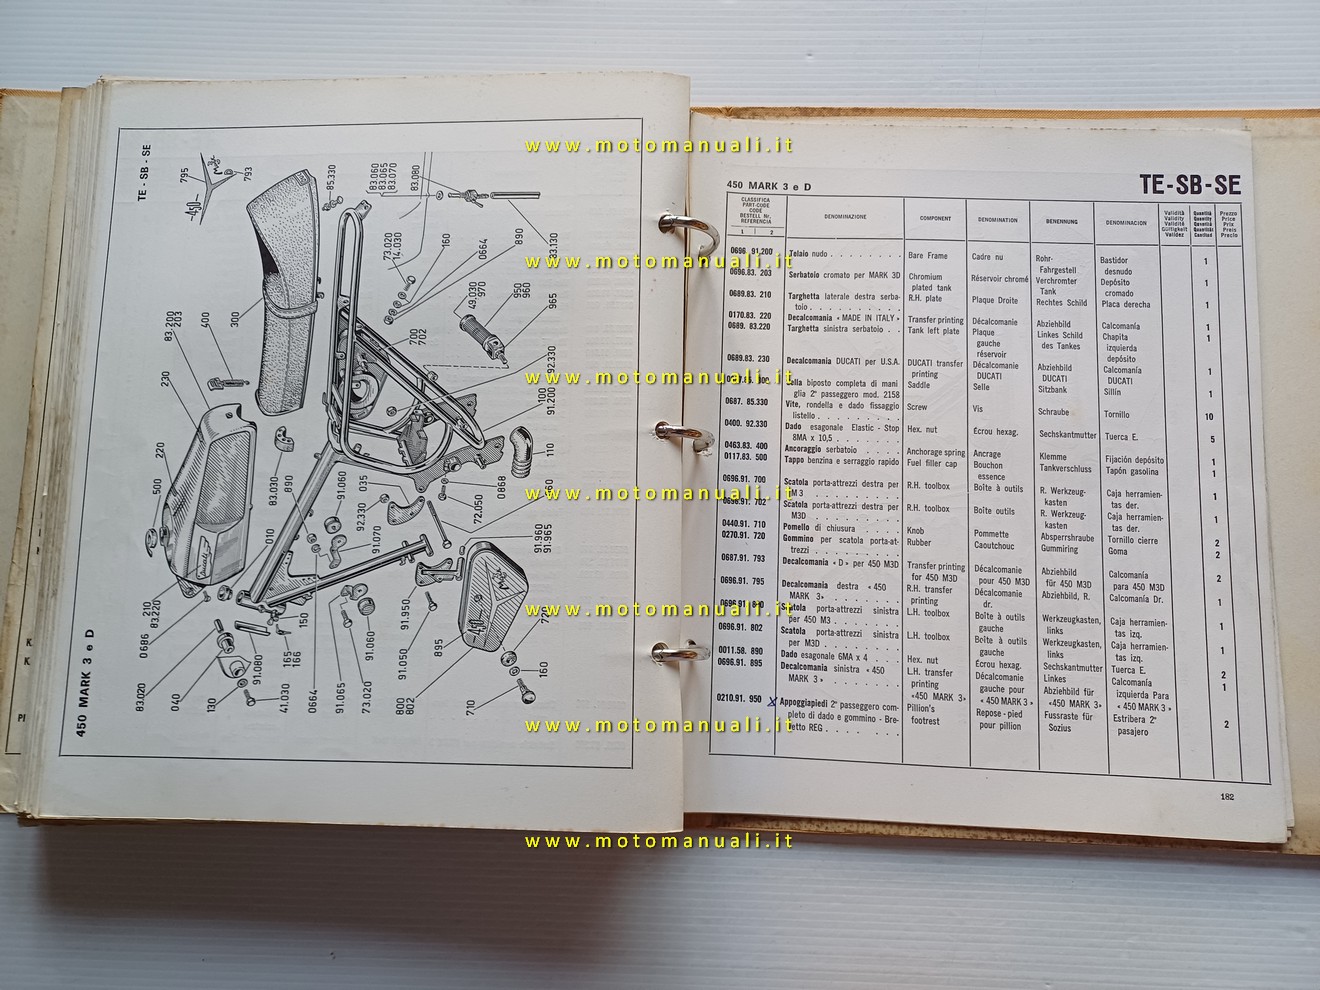 TE - SB - SE
450 MARK 3 e D
795
793
450
85.330
83.060
83.065
83.070
83.080
83.200
203
400
300
73.020
14.030
160
0664
890
83.130
230
220
500
49.030
970
950
960
965
700
702
92.330
100
91.200
110
83.030
890
010
91.060
035
92.330
91.070
72.050
0868
91.960
91.965
210
83.220
0686
150
165
166
91.080
040
83.020
130
41.030
0664
91.065
73.020
91.060
91.950
91.050
800
802
895
770
160
710
450 MARK 3 e D
TE-SB-SE
CLASSIFICA
PART-CODE
CODE
BESTELL Nr.
REFERENCIA
1 2
DENOMINAZIONE
COMPONENT
DENOMINATION
BENENNUNG
DENOMINACION
Validità
Validity
Validité
Gültigkeit
Validez
Quantità
Quantity
Quantité
Quantität
Cantidad
Prezzo
Price
Prix
Preis
Precio
0696 91.200 Telaio nudo Bare Frame Cadre nu Rohr-Fahrgestell Bastidor desnudo 1
0696.83. 203 Serbatoio cromato per MARK 3D Chromium plated tank Réservoir chromé Verchromter Tank Depósito cromado 1
0689.83. 210 Targhetta laterale destra serbatoio R.H. plate Plaque Droite Rechtes Schild Placa derecha 1
0170.83. 220 Decalcomania « MADE IN ITALY » Transfer printing Décalcomanie Abziehbild Calcomanía 1
0689. 83.220 Targhetta sinistra serbatoio Tank left plate Plaque gauche réservoir Linkes Schild des Tankes Chapita izquierda depósito 1
0689.83. 230 Decalcomania DUCATI per U.S.A. DUCATI transfer printing Décalcomanie DUCATI Abziehbild DUCATI Calcomanía DUCATI 1
Sella biposto completa di maniglia 2° passeggero mod. 2158 Saddle Selle Sitzbank Sillín 1
0687. 85.330 Vite, rondella e dado fissaggio listello Screw Vis Schraube Tornillo 10
0400. 92.330 Dado esagonale Elastic - Stop 8MA x 10,5 Hex. nut Écrou hexag. Sechskantmutter Tuerca E. 5
0463.83. 400 Ancoraggio serbatoio Anchorage spring Ancrage Klemme Fijación depósito 1
0117.83. 500 Tappo benzina e serraggio rapido Fuel filler cap Bouchon essence Tankverschluss Tapón gasolina 1
0696.91. 700 Scatola porta-attrezzi destra per M 3 R.H. toolbox Boîte à outils R. Werkzeug-kasten Caja herramientas der. 1
0696.91. 702 Scatola porta-attrezzi destra per M3D R.H. toolbox Boîte outils R. Werkzeug-kasten Caja herramientas der. 1
0440.91. 710 Pomello di chiusura Knob Pommette Absperrshraube Tornillo cierre 2
0270.91. 720 Gommino per scatola porta-attrezzi Rubber Caoutchouc Gummiring Goma 2
0687.91. 793 Decalcomania « D » per 450 M3D Transfer printing for 450 M3D Décalcomanie pour 450 M3D Abziehbild für 450 M3D Calcomanía para 450 M3D 2
0696.91. 795 Decalcomania destra « 450 MARK 3» R.H. transfer printing Décalcomanie dr. Abziehbild, R. Calcomanía Dr. 1
0696.91. 800 Scatola porta-attrezzi sinistra per 450 M3 L.H. toolbox Boîte à outils gauche Werkzeugkasten, links Caja herramientas izq. 1
0696.91. 802 Scatola porta-attrezzi sinistra per M3D L.H. toolbox Boîte à outils gauche Werkzeugkasten, links Caja herramientas izq. 1
0011.58. 890 Dado esagonale 6MA x 4 Hex. nut Écrou hexag. Sechskantmutter Tuerca E. 2
0696.91. 895 Decalcomania sinistra « 450 MARK 3» L.H. transfer printing «450 MARK 3» Décalcomanie gauche pour «450 MARK 3» Linkes Abziehbild für «450 MARK 3» Calcomanía izquierda Para «450 MARK 3» 1
0210.91. 950 x Appoggiapiedi 2° passeggero completo di dado e gommino - Brevetto REG Pillion's footrest Repose - pied pour pillion Fussraste für Sozius Estribera 2° pasajero 2
182
www.motomanuali.it
www.motomanuali.it
www.motomanuali.it
www.motomanuali.it
www.motomanuali.it
www.motomanuali.it
www.motomanuali.it